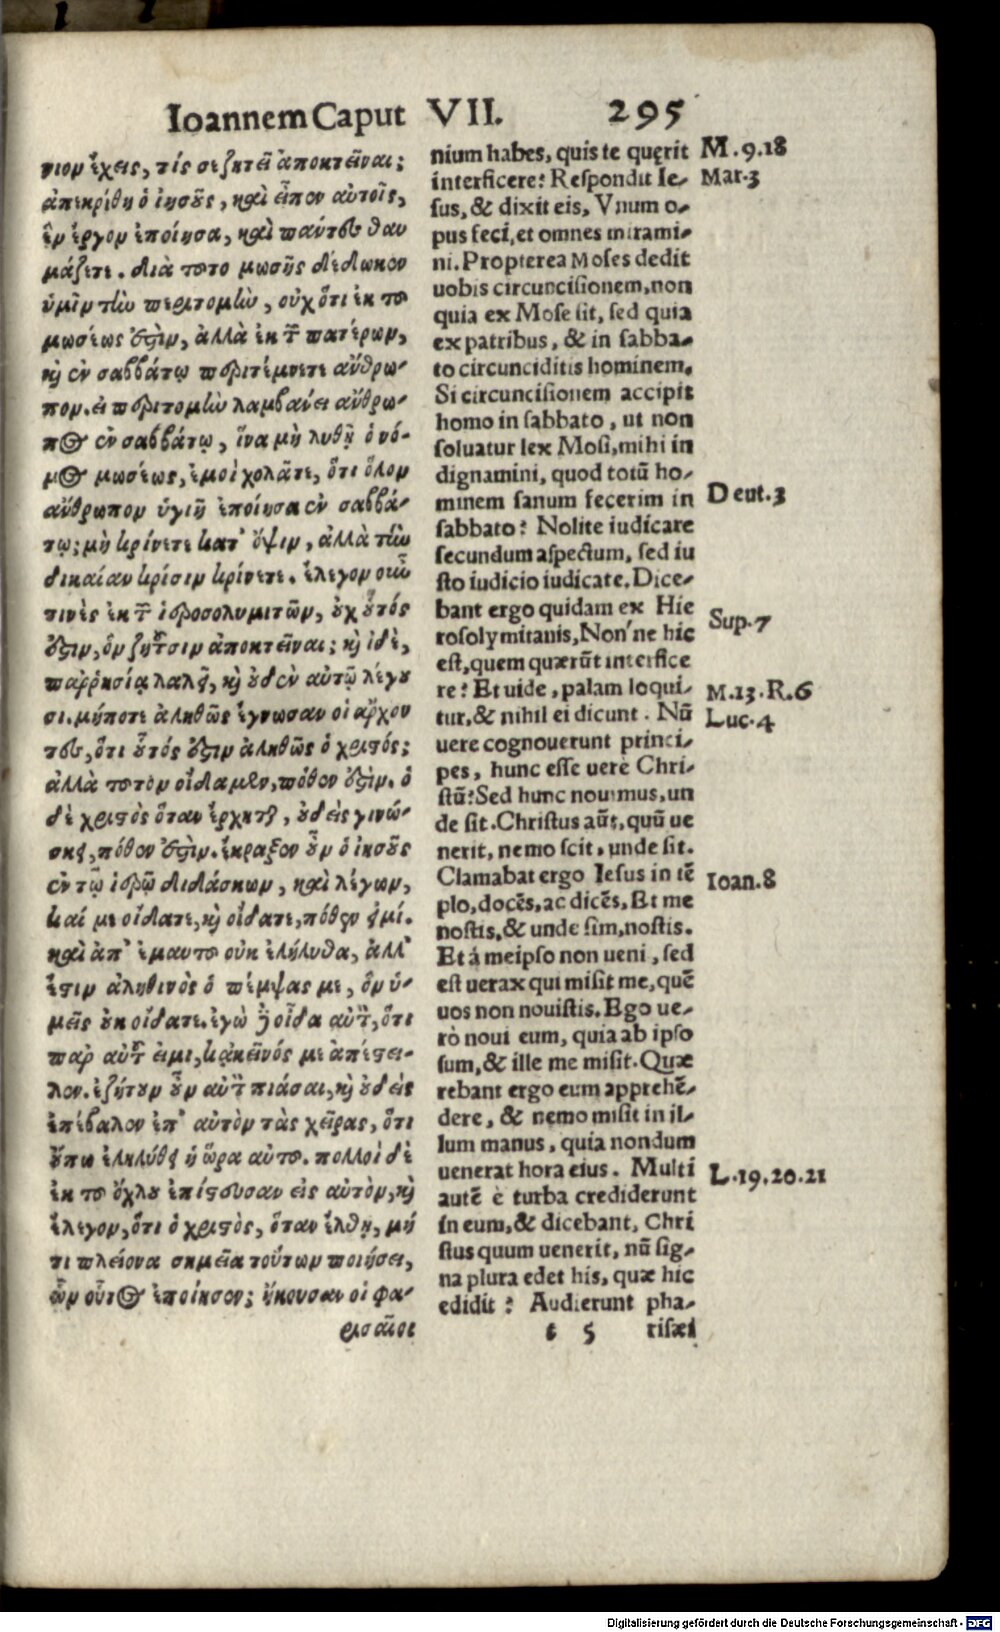 Ioannem Caput VII. 295
νιον ἔχεις, τίς σε ζητεῖ ἀποκτεῖναι;
ἀπεκρίθη ὁ ἰησοῦς, καὶ εἶπεν αὐτοῖς,
ἓν ἔργον ἐποίησα, καὶ πάντες θαυ
μάζετε. διὰ τοῦτο μωσῆς δέδωκεν
ὑμῖν τὴν περιτομὴν, οὐχ ὅτι ἐκ τοῦ
μωσέως ἐστὶν, ἀλλὰ ἐκ τῶν πατέρων,
καὶ ἐν σαββάτῳ περιτέμνετε ἄνθρω-
πον. εἰ περιτομὴν λαμβάνει ἄνθρω-
πος ἐν σαββάτῳ, ἵνα μὴ λυθῇ ὁ νό-
μος μωσέως, ἐμοὶ χολᾶτε, ὅτι ὅλον
ἄνθρωπον ὑγιῆ ἐποίησα ἐν σαββά-
τῳ; μὴ κρίνετε κατ' ὄψιν, ἀλλὰ τὴν
δικαίαν κρίσιν κρίνετε. ἔλεγον οὖν
τινὲς ἐκ τῶν ἱεροσολυμιτῶν, οὐχ οὗτός
ἐστιν, ὃν ζητοῦσιν ἀποκτεῖναι; καὶ ἰδὲ,
παῤῥησίᾳ λαλεῖ, καὶ οὐδὲν αὐτῷ λέγου
σι. μήποτε ἀληθῶς ἔγνωσαν οἱ ἄρχον
τες, ὅτι οὗτός ἐστιν ἀληθῶς ὁ χριστός;
ἀλλὰ τοῦτον οἴδαμεν, πόθεν ἐστὶν. ὁ
δὲ χριστὸς ὅταν ἔρχηται, οὐδεὶς γινώ-
σκει, πόθεν ἐστὶν. ἔκραξεν οὖν ὁ ἰησοῦς
ἐν τῷ ἱερῷ διδάσκων, καὶ λέγων,
κἀμὲ οἴδατε, καὶ οἴδατε, πόθεν εἰμί.
καὶ ἀπ' ἐμαυτοῦ οὐκ ἐλήλυθα, ἀλλ'
ἔστιν ἀληθινὸς ὁ πέμψας με, ὃν ὑ-
μεῖς οὐκ οἴδατε. ἐγὼ δὲ οἶδα αὐτὸν, ὅτι
παρ αὐτοῦ εἰμι, κἀκεῖνός με ἀπέστει-
λεν. ἐζήτουν οὖν αὐτὸν πιάσαι, καὶ οὐδεὶς
ἐπέβαλεν ἐπ' αὐτὸν τὰς χεῖρας, ὅτι
οὔπω ἐληλύθει ἡ ὥρα αὐτοῦ. πολλοὶ δὲ
ἐκ τοῦ ὄχλου ἐπίστευσαν εἰς αὐτὸν, καὶ
ἔλεγον, ὅτι ὁ χριστὸς, ὅταν ἔλθῃ, μή
τι πλείονα σημεῖα τούτων ποιήσει,
ὧν οὗτος ἐποίησεν; ἤκουσαν οἱ φα-
ρισαῖοι
nium habes, quis te quęrit
interficere? Respondit Ie-
sus, & dixit eis, Vnum o-
pus feci, et omnes mirami-
ni. Propterea Moses dedit
uobis circuncisionem, non
quia ex Mose sit, sed quia
ex patribus, & in sabba-
to circunciditis hominem.
Si circuncisionem accipit
homo in sabbato, ut non
soluatur lex Mosi, mihi in
dignamini, quod totū ho-
minem sanum fecerim in
sabbato? Nolite iudicare
secundum aspectum, sed iu
sto iudicio iudicate. Dice-
bant ergo quidam ex Hie
rosolymitanis, Nonne hic
est, quem quærūt interfice
re? Et uide, palam loqui-
tur, & nihil ei dicunt. Nū
uere cognouerunt princi-
pes, hunc esse uerè Chri-
stū? Sed hunc nouimus, un
de sit. Christus aūt, quū ue
nerit, nemo scit, unde sit.
Clamabat ergo Iesus in tē
plo, docēs, ac dicēs, Et me
nostis, & unde sim, nostis.
Et á meipso non ueni, sed
est uerax qui misit me, quē
uos non nouistis. Ego ue-
rò noui eum, quia ab ipso
sum, & ille me misit. Quæ
rebant ergo eum apprehē-
dere, & nemo misit in il-
lum manus, quia nondum
uenerat hora eius. Multi
autē è turba crediderunt
in eum, & dicebant, Chri
stus quum uenerit, nū sig-
na plura edet his, quæ hic
edidit? Audierunt pha-
t 5 risæi
M.9.18
Mar.3
Deut.3
Sup.7
M.13.R.6
Luc.4
Ioan.8
L.19.20.21
Digitalisierung gefördert durch die Deutsche Forschungsgemeinschaft - DFG